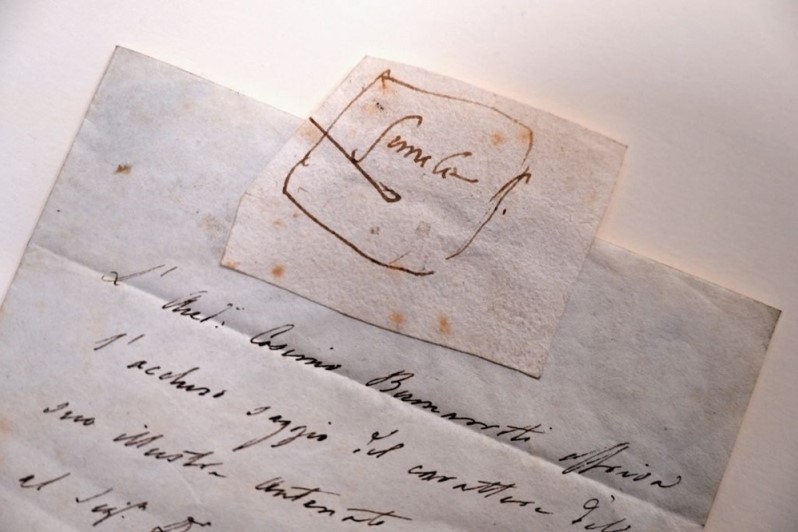 L'Aud.r Cosimo Buonarroti offriva
l'accluso saggio del carattere del
suo illustre antenato
al Sig.r D.